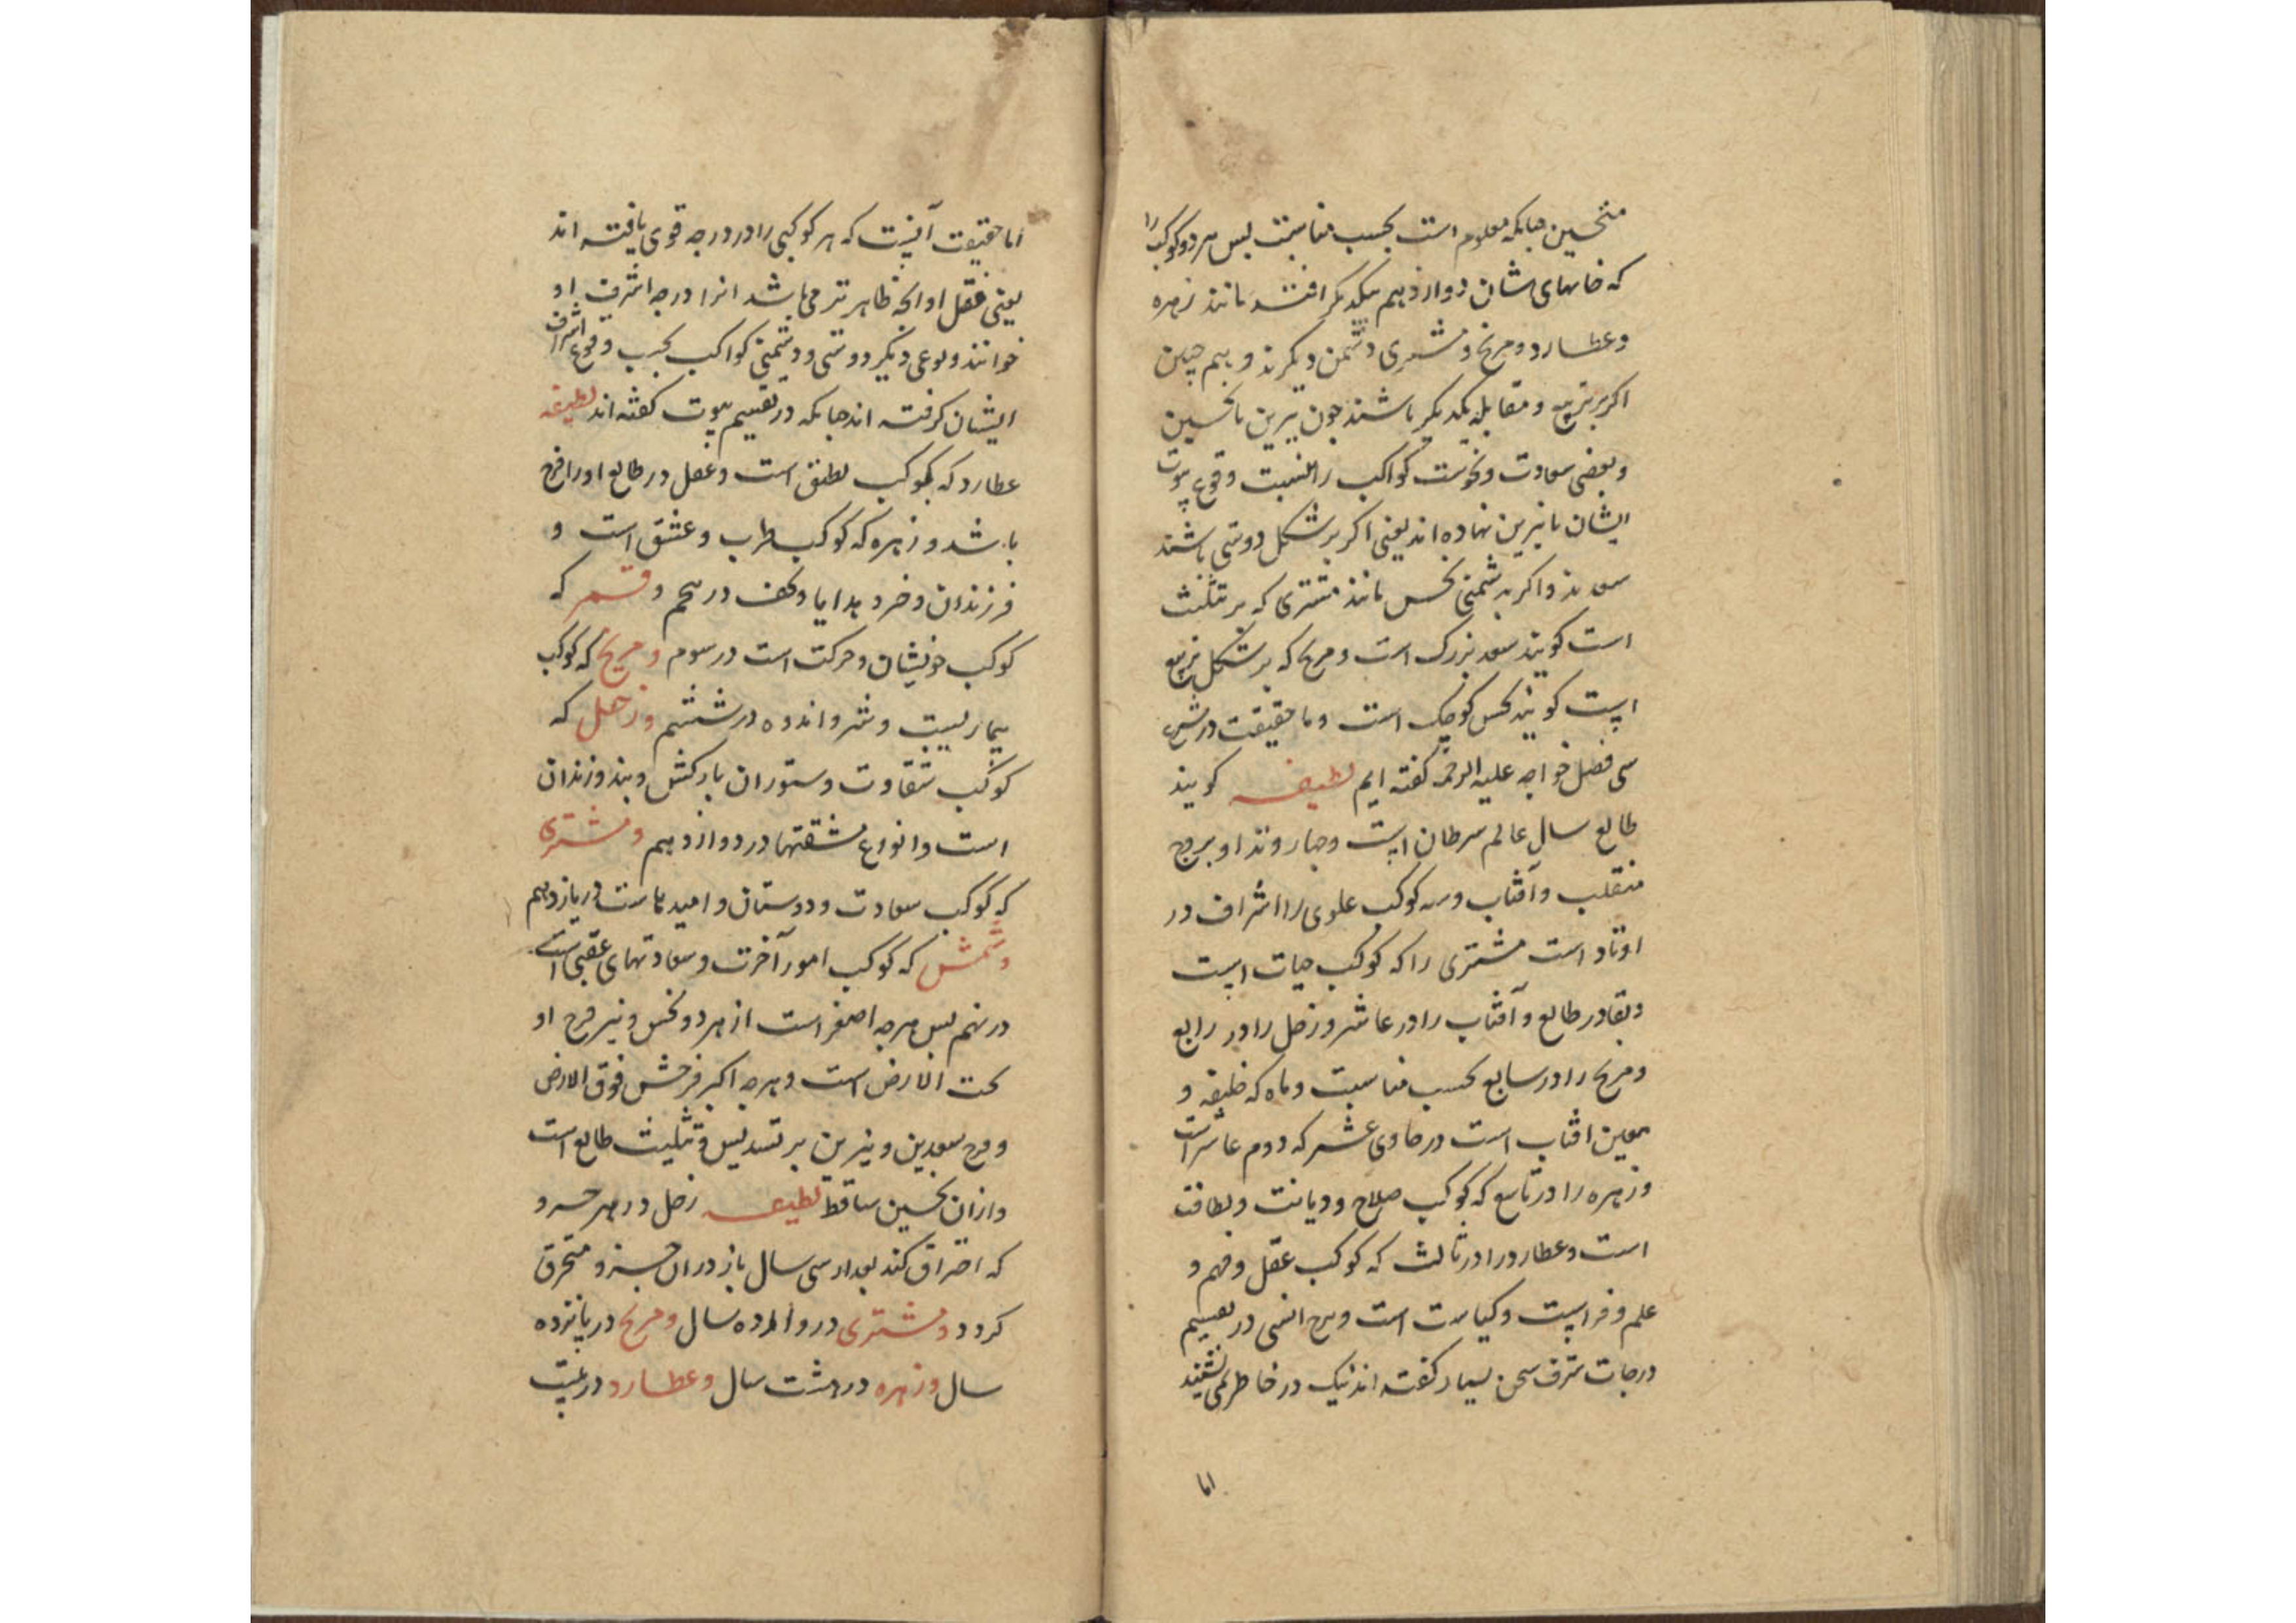 منحسین جنانکه معلوم است بحسب مناسبت بس هر دو کوکب را
که خانهای ایشان دوازدهم یکدیکر افتد مانند زهره
وعطارد ومریخ ومشتری دشمن دیکرند وهم چنین
اکر بر تربیع ومقابله یکدیکر باشند جون نیرین با نحسین
وبعضی سعادت ونحوست کواکب را بنسبت وقوع بیوت
ایشان با نیرین نهاده اند یعنی اکر بر شکل دوستی باشند
سعدند واکر بدشمنی نحس مانند مشتری که بر تثلیث
است کویند سعد بزرک است ومریخ که بر شکل تربیع
است کویند نحس کوجک است وما حقیقت در شرح
سی فصل خواجه علیه الرحمه کفته ایم لطیفه کویند
طالع سال عالم سرطان است وجهار وتد او بروج
منقلب وآفتاب وسه کوکب علوی را اشراف در
اوتاد است مشتری را که کوکب حیات است
وبقا در طالع وآفتاب را در عاشر وزحل را در رابع
ومریخ را در سابع بحسب مناسبت وماه که خلیفه و
معین افتاب است در حادی عشر که دوم عاشر است
وزهره را در تاسع که کوکب صلاح ودیانت ولطافت
است وعطارد را در ثالث که کوکب عقل وفهم و
علم وفراست وکیاست است در تقسیم
درجات شرف سخن بسیار کفته اند لیک در خاطر نمی نشیند
اما
اما حقیقت آنست که هر کوکبی را در درجه قوی یافته اند
یعنی فعل او انجا ظاهرتر می باشد انرا درجه اشرف او
خوانند ونوعی دیکر دوستی ودشمنی کواکب بحسب وقوع اشراف
ایشان کرفته اند جنانکه در تقسیم بیوت کفته اند لطیفه
عطارد که کوکب نطق است وعقل در طالع او را فرح
باشد وزهره که کوکب طرب وعشق است و
فرزندان وخرد هدایا وتحف در پنجم وقمر که
کوکب خویشان وحرکت است در سوم ومریخ که کوکب
بیماریست وشر واندوه در ششم وزحل که
کوکب شقاوت وستوران بارکش وبند وزندان
است وانواع مشقتها در دوازدهم ومشتری
که کوکب سعادت ودوستان وامیدهاست در یازدهم
وشمش که کوکب امور آخرت وسعادتهای عقبی است
در نهم بس هر جه اصغر است از هر دو نحس ونیر فرح او
تحت الارض است وهر جه اکبر فرحش فوق الارض
وفرح سعدین ونیرین بر تسدیس وتثلیث طالع است
وازان نحسین ساقط لطیفه زحل در هر جزو
که احتراق کند بعد از سی سال باز در ان جزو محترق
کردد ومشتری در دوازده سال ومریخ در پانزده
سال وزهره در هشت سال وعطارد در بیست